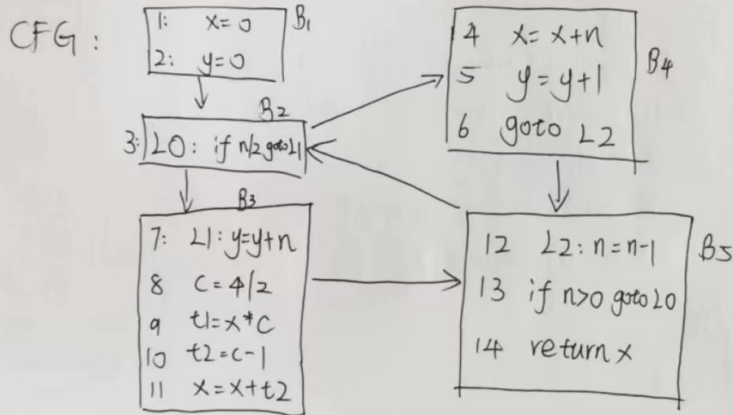 CFG:
B1
1: x=0
2: y=0
B2
3: L0: if n/2 goto L1
B3
7: L1: y=y+n
8 c=4/2
9 t1=x*c
10 t2=c-1
11 x=x+t2
B4
4 x=x+n
5 y=y+1
6 goto L2
B5
12 L2: n=n-1
13 if n>0 goto L0
14 return x